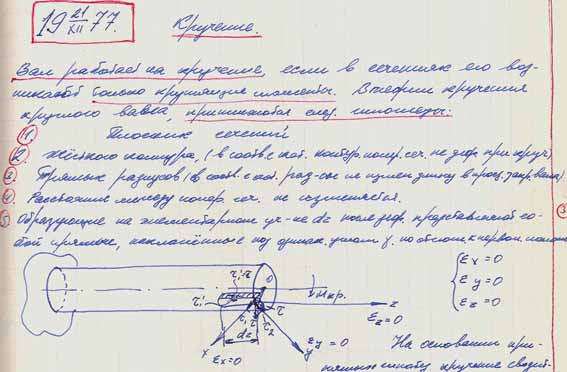 19 21/XII 77. Кручение.
Вал работает на кручение, если в сечениях его воз-
никают только крутящие моменты. В теории кручения
круглого вала, принимаются след. гипотезы:
1. Плоских сечений
2. Жёсткого контура, (в соотв. с кот. контур. попер. сеч. не деф. при круч)
3. Прямых радиусов (в соотв. с кот. рад-сы не измен длину в проц. закр. вала)
4. Расстояние между попер. сеч. не изменяется.
5. Образующие на элементарном уч-ке dz после деф. представляют со-
бой прямые, наклонённые под одинак. углом γ по отнош. к первон.
3
εx = 0
εy = 0
εz = 0
Mкр.
z
εz = 0
dz
x
εx = 0
y
εy = 0
На основании при-
нятых гипотез кручение сводит-